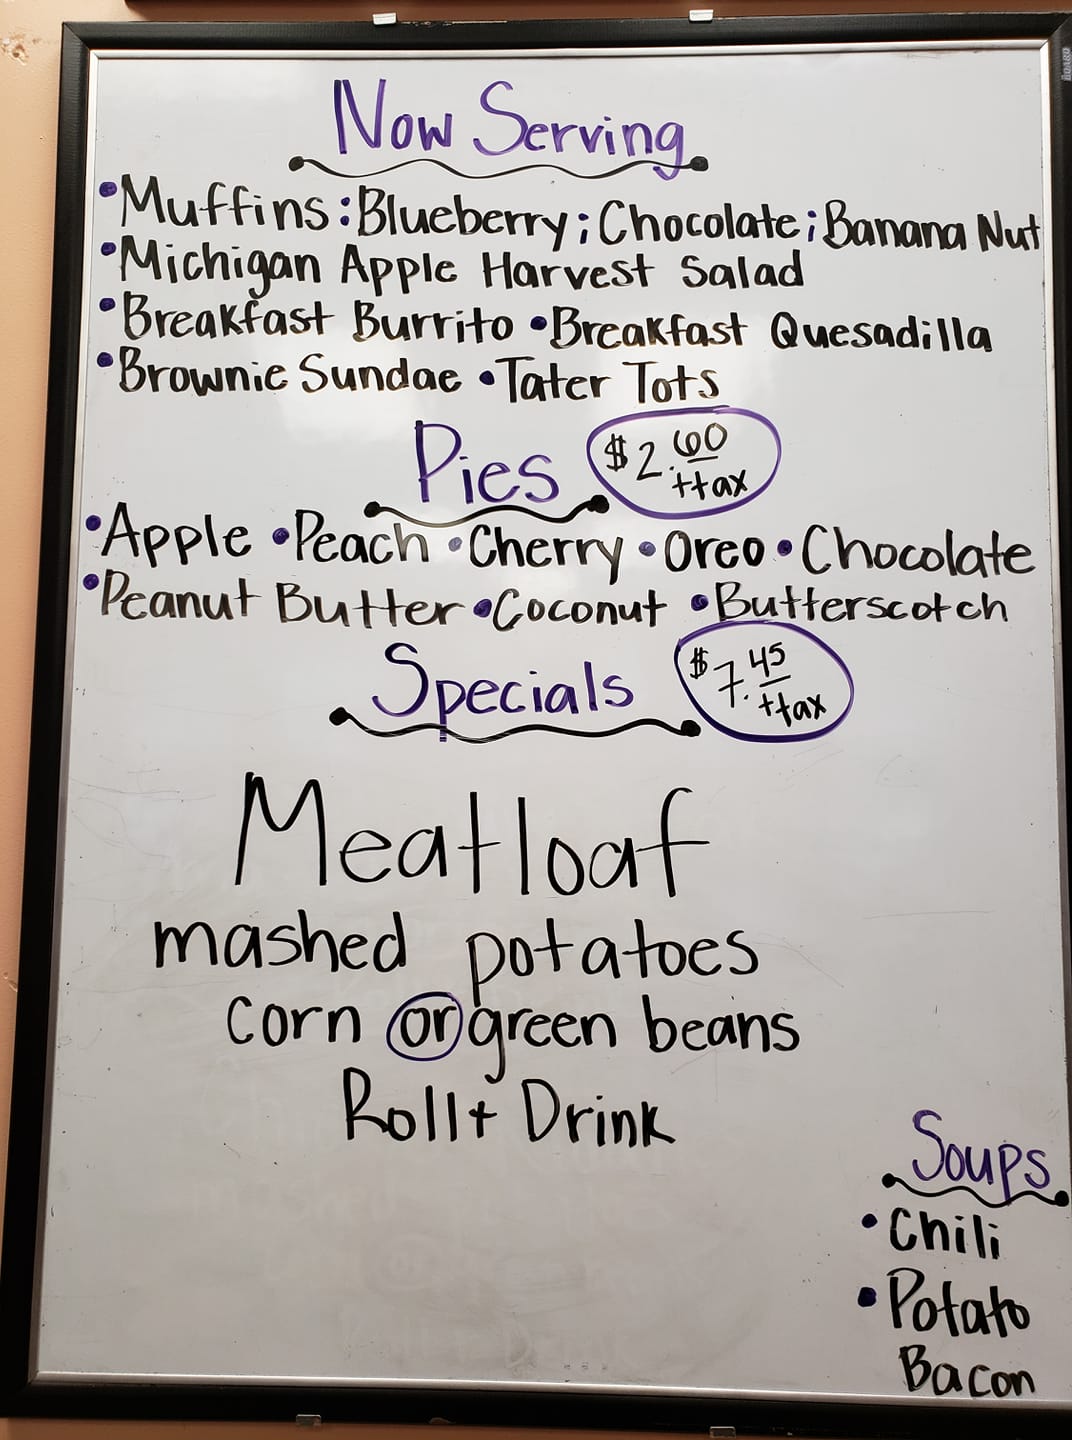 Now Serving
•Muffins:Blueberry;Chocolate;Banana Nut
•Michigan Apple Harvest Salad
•Breakfast Burrito •Breakfast Quesadilla
•Brownie Sundae •Tater Tots
Pies $2.60 +tax
•Apple •Peach •Cherry •Oreo •Chocolate
•Peanut Butter •Coconut •Butterscotch
Specials $7.45 +tax
Meatloaf
mashed potatoes
corn or green beans
Roll + Drink
Soups
•Chili
•Potato
Bacon